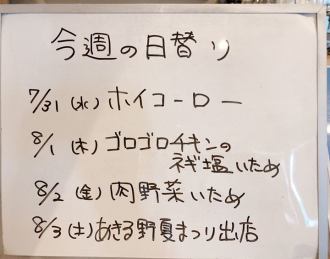 今週の日替り
7/31(水)ホイコーロー
8/1(木)ゴロゴロチキンの
ネギ塩いため
8/2(金)肉野菜いため
8/3(土)あきる野夏まつり出店